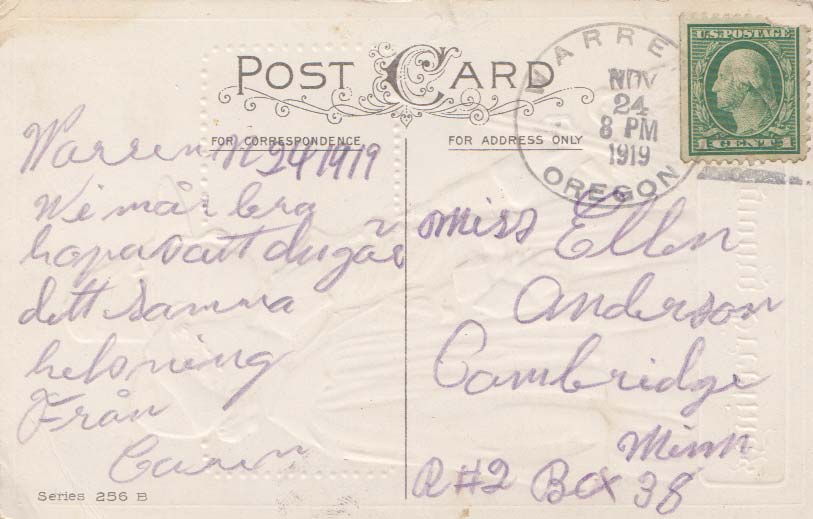 POST CARD
FOR CORRESPONDENCE
FOR ADDRESS ONLY
WARREN
NOV
24
8 PM
1919
OREGON
U.S. POSTAGE
1 CENT 1
Warren N 24 1919
Wi mår bra
hopas att du gås
dett samma
helsning
Från
Miss Ellen
Anderson
Cambridge
Minn
R #2 Box 38
Series 256 B